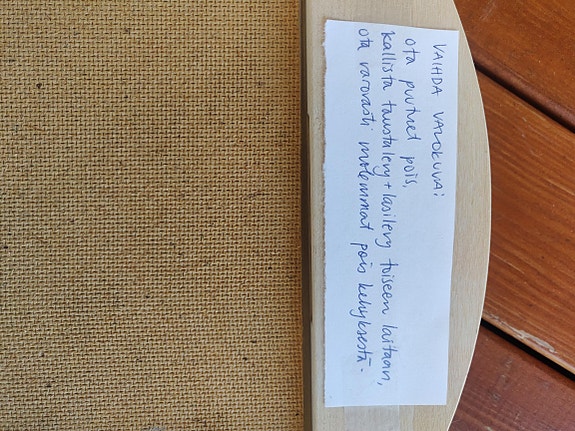 VAIHDA VALOKUVA:
ota puturet pois,
kallista taustalevy + lasilevy toiseen laitaan,
ota varovasti molemmat pois kehyksestä.